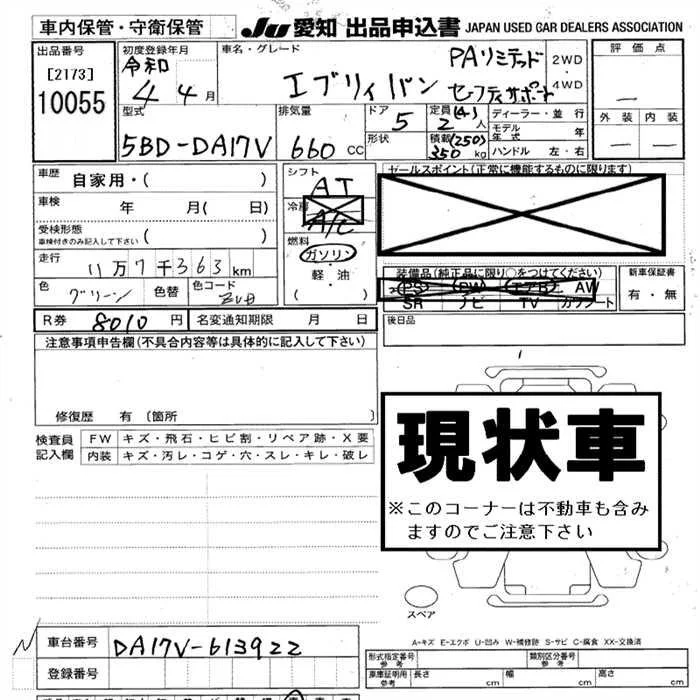 車内保管・守衛保管
JU 愛知 出品申込書 JAPAN USED CAR DEALERS ASSOCIATION
出品番号
[2173]
10055
初度登録年月
令和
4 4月
車名・グレード
エブリィバン
PAリミテッド
セーフティサポート
2WD
・
4WD
評価点
―
外装 内装
― ―
型式
5BD-DA17V
排気量
660 CC
ドア
5
形状
定員 (4)
2 人
積載 (250)
350 kg
ディーラー・並行
モデル年式 年
ハンドル 左・右
車歴 自家用・( )
車検 年 月( 日)
受検形態
車検付きのみ記入して下さい ( )
走行
11万7千363km
色
グリーン
色替
色コード
シフト
AT
冷房
A/C
燃料
ガソリン
・
軽・油
( )
セールスポイント(正常に機能するものに限ります)
装備品(純正品に限り○をつけてください)
PS PW エアB AW
SR ナビ TV カワシート
新車保証書
有・無
R券 8010 円
名変通知期限 月 日
後日品
注意事項申告欄(不具合内容等は具体的に記入して下さい)
修復歴 有 〔箇所 〕
検査員
記入欄
FW キズ・飛石・ヒビ割・リペア跡・X要
内装 キズ・汚レ・コゲ・穴・スレ・キレ・破レ
現状車
※このコーナーは不動車も含み
ますのでご注意下さい
スペア
A-キズ E-エクボ U-凹み W-補修跡 S-サビ C-腐食 XX-交換済
車台番号 DA17V-613922
登録番号
形式指定番号
参考
類別区分番号
参考
車庫証明用
参考
長さ cm 幅 cm 高さ cm